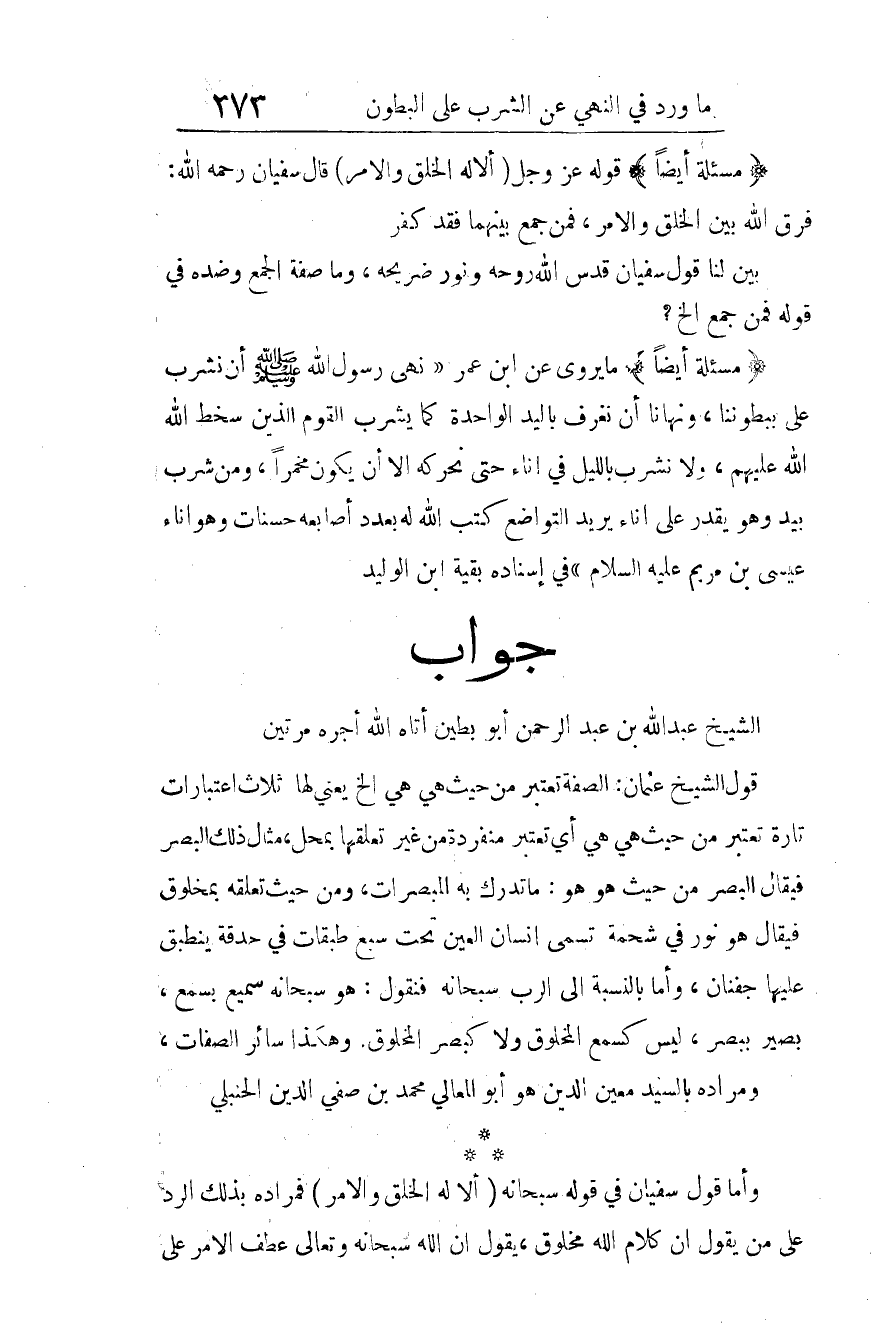 ما ورد في النهي عن الشرب على البطون ٣٧٣
﴿ مسئلة أيضاً ﴾ قوله عز وجل ( ألاله الخلق والامر ) قال سفيان رحمه الله :
فرق الله بين الخلق والامر ، فمن جمع بينهما فقد كفر
بين لنا قول سفيان قدس الله روحه ونور ضريحه ، وما صفة الجمع وضده في
قوله فمن جمع الخ ؟
﴿ مسئلة أيضاً ﴾ مايروى عن ابن عمر « نهى رسول الله ﷺ أن نشرب
على ببطوننا ، ونهانا أن نغرف باليد الواحدة كما يشرب القوم الذين سخط الله
الله عليهم ، ولا نشرب بالليل في اناء حتى نحركه الا أن يكون مخمراً ، ومن شرب
بيد وهو يقدر على اناء يريد التواضع كتب الله له بعدد أصابعه حسنات وهو اناء
عيسى بن مريم عليه السلام » في إسناده بقية ابن الوليد
جواب
الشيخ عبدالله بن عبد الرحمن أبو بطين أتاه الله أجره مرتين
قول الشيخ عثمان : الصفة تعتبر من حيث هي هي الخ يعني لها ثلاث اعتبارات
تارة تعتبر من حيث هي هي أي تعتبر منفردة من غير تعلقها بمحل ، مثال ذلك البصر
فيقال البصر من حيث هو هو : ماتدرك به المبصرات ، ومن حيث تعلقه بمخلوق
فيقال هو نور في شحمة تسمى انسان العين تحت سبع طبقات في حدقة ينطبق
عليها جفنان ، وأما بالنسبة الى الرب سبحانه فنقول : هو سبحانه سميع بسمع ،
بصير ببصر ، ليس كسمع المخلوق ولا كبصر المخلوق . وهكذا سائر الصفات ،
ومراده بالسيد معين الدين هو أبو المعالي محمد بن صفي الدين الحنبلي
*
* *
وأما قول سفيان في قوله سبحانه ( ألا له الخلق والامر ) فمراده بذلك الرد
على من يقول ان كلام الله مخلوق ، يقول ان الله سبحانه وتعالى عطف الامر على